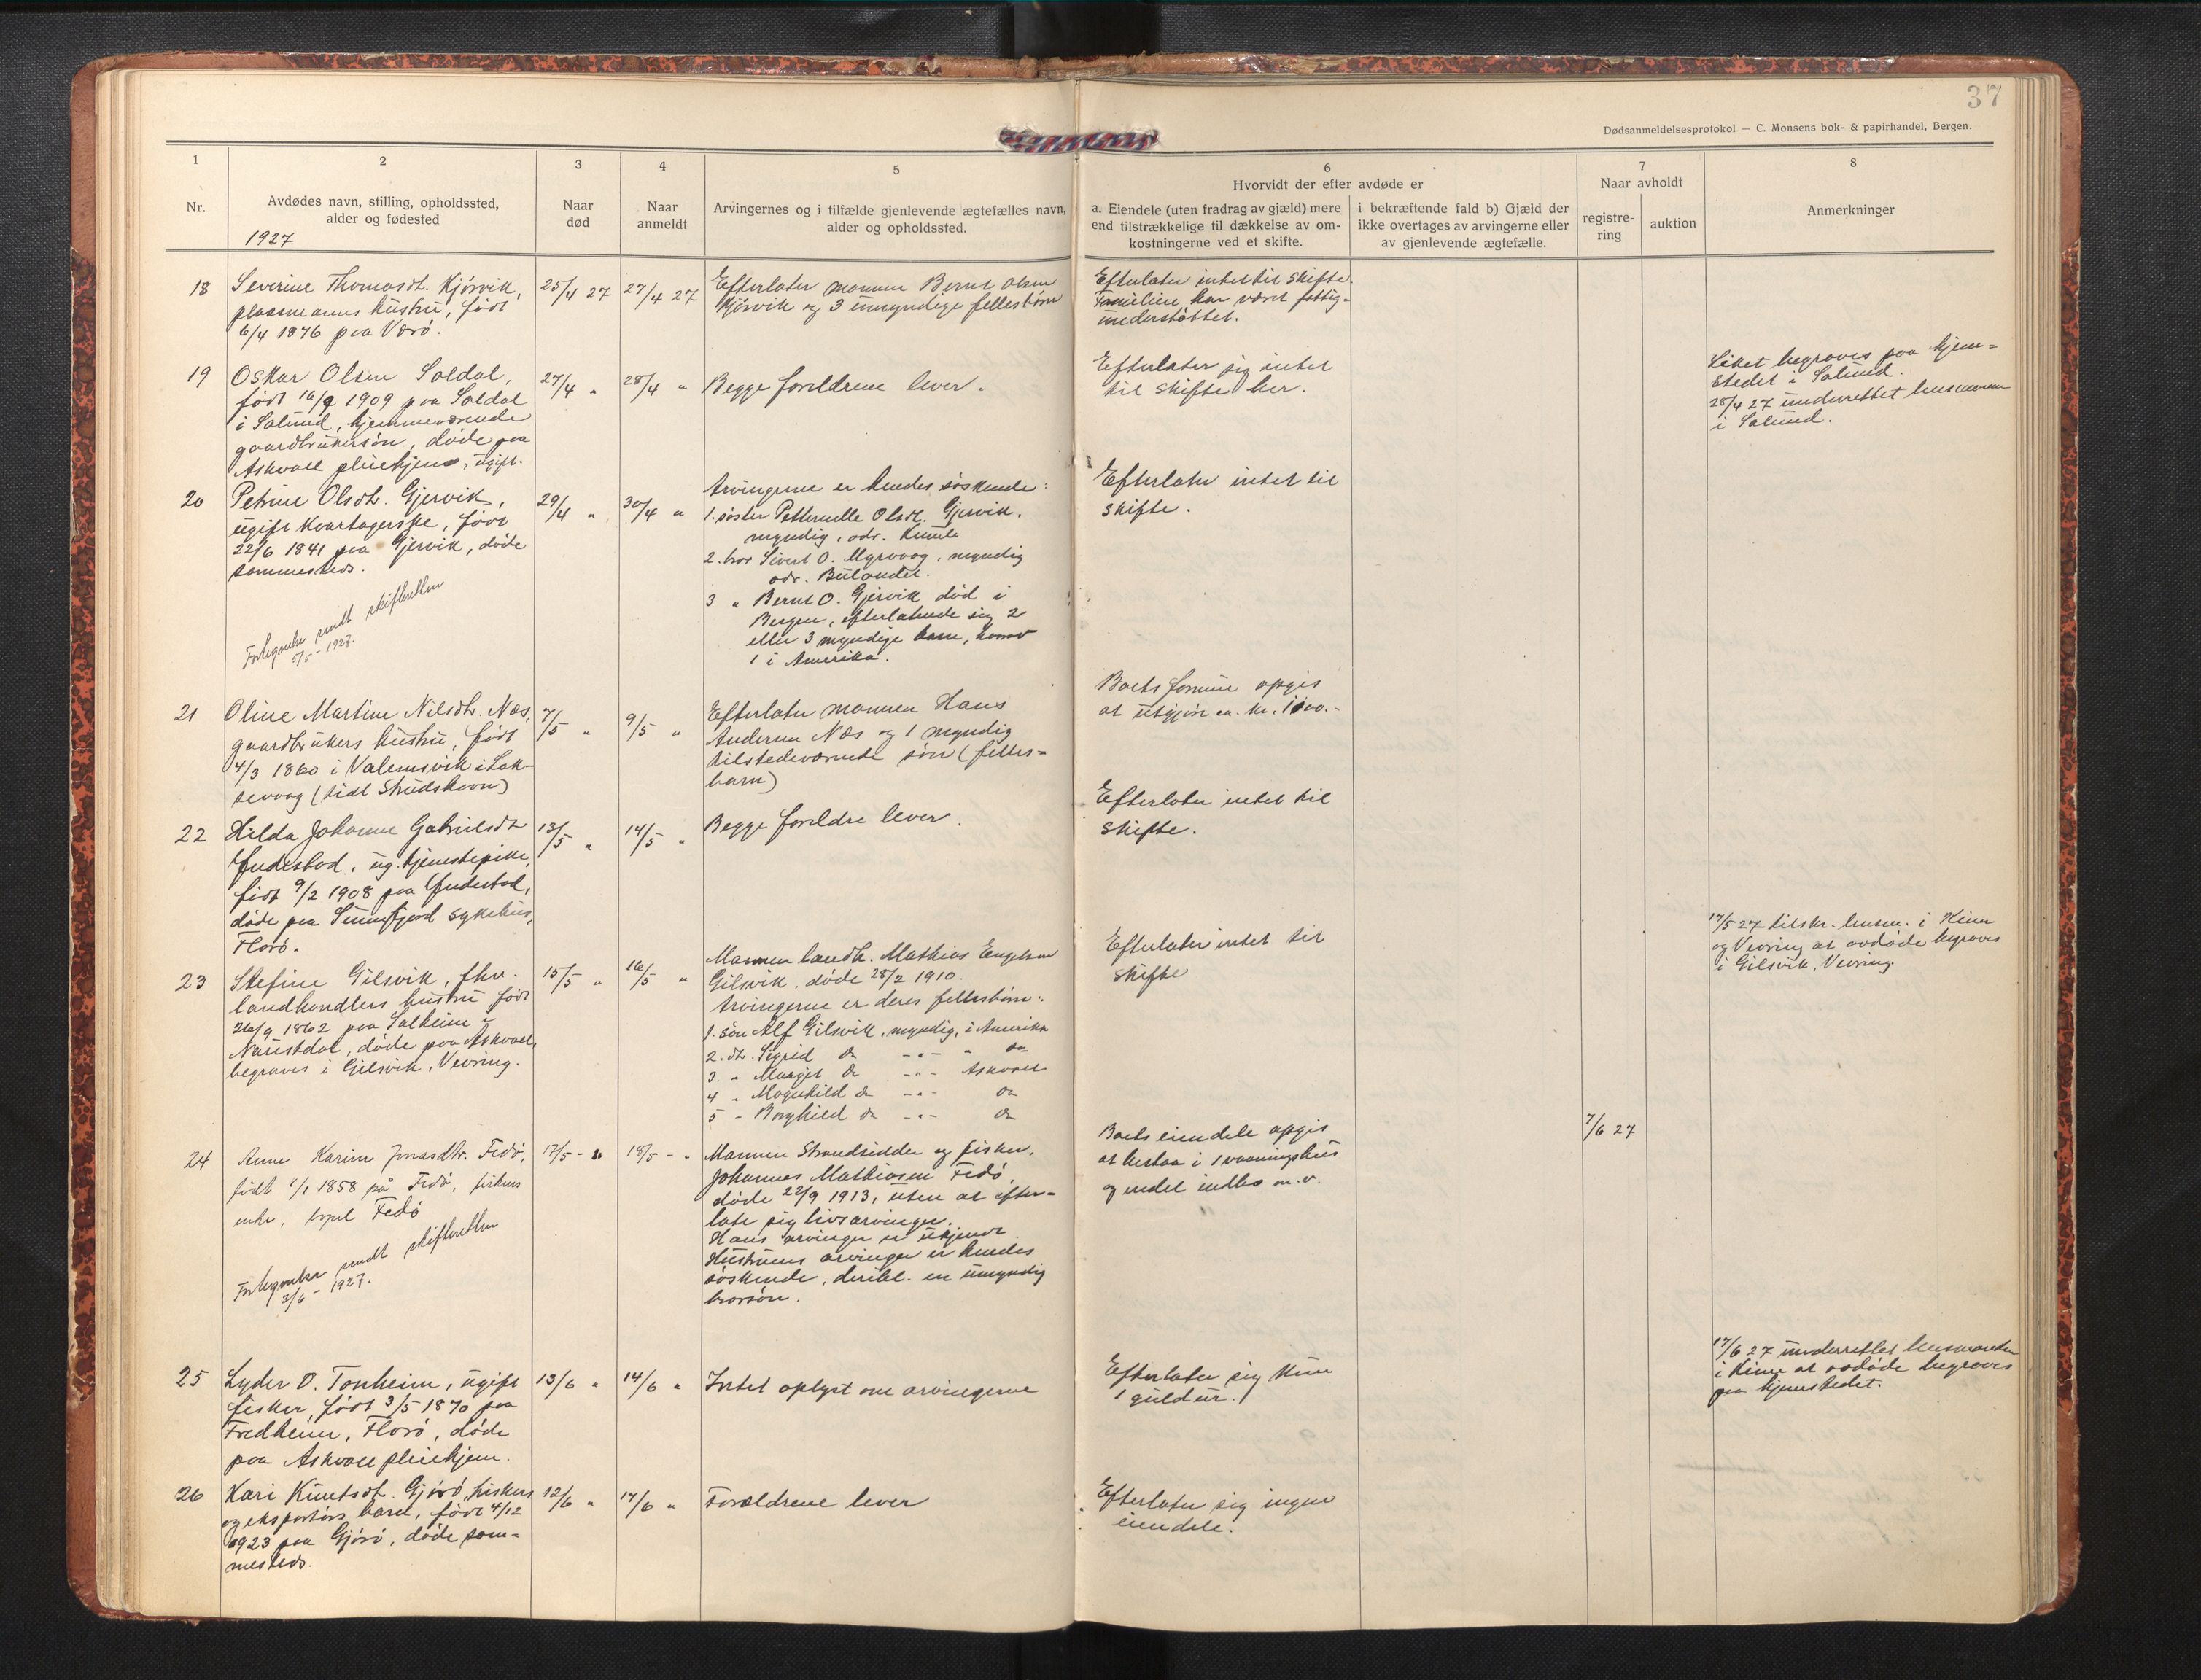 37
Dødsanmeldelsesprotokol — C. Monsens bok- & papirhandel, Bergen.
1
2
3
4
5
6
7
8
Nr.
Avdødes navn, stilling, opholdssted,
alder og fødested
1927
Naar
død
Naar
anmeldt
Arvingernes og i tilfælde gjenlevende ægtefælles navn,
alder og opholdssted.
Hvorvidt der efter avdøde er
a. Eiendele (uten fradrag av gjæld) mere
end tilstrækkelige til dækkelse av om-
kostningerne ved et skifte.
i bekræftende fald b) Gjæld der
ikke overtages av arvingerne eller
av gjenlevende ægtefælle.
Naar avholdt
registre-
ring
auktion
Anmerkninger
18
Severine Thomasdt. Kjørvik,
plassmanns hustru, født
6/4 1876 paa Værø.
25/4 27
27/4 27
Efterlater mannen Bernt Olsen
Kjørvik og 3 umyndige fellesbörn
Efterlater intet til skifte.
Familien har været fattig-
understøttet.
19
Oskar Olsen Soldal,
født 16/9 1909 paa Soldal
i Solund, hjemmeværende
gaardbrukersøn, døde paa
Askvoll pleiehjem, ugift.
27/4 "
28/4 "
Begge foreldrene lever.
Efterlater sig intet
til skifte her.
Liket begraves paa hjem-
stedet i Solund.
28/4 27 underrettet lensmannen
i Solund.
20
Petrine Olsdt. Gjervik,
ugift kaartagerske, født
22/6 1841 paa Gjervik, døde
sammesteds.
Forlegnelse sendt skifteretten
5/5 - 1927.
29/4 "
30/4 "
Arvingerne er hendes søskende:
1. søster Petternelle Olsdt. Gjervik,
myndig, adr.
2. bror Sivert O. Myrvaag, myndig
adr. Bulandet.
3 " Bernt O. Gjervik død i
Bergen, efterlatende sig 2
eller 3 myndige barn, hvorav
1 i Amerika.
Efterlater intet til
skifte.
21
Oline Martine Nilsdtr. Næs,
gaardbrukers hustru, født
4/3 1860 i Valemsvik i Lak-
sevaag (tidl Strudshavn)
7/5 "
9/5 "
Efterlater mannen Hans
Andersen Næs og 1 myndig
tilstedeværende søn (felles-
barn)
Boets formue opgis
at utgjøre ca. kr. 1000.-
22
Hilda Johanne Gabrielsdt
Indestad, ug. tjenestepike,
født 9/2 1908 paa Indestad,
døde paa Sunnfjord sykehus,
Florø.
13/5 "
14/5 "
Begge foreldre lever.
Efterlater intet til
skifte.
23
Stefine Gilsvik, fhv.
landhandlers hustru født
26/9 1862 paa Solheim i
Naustdal, døde paa Askvoll,
begraves i Gilsvik, Vevring.
15/5 "
16/5 "
Mannen landh. Mathias Engelsen
Gilsvik, døde 28/2 1910.
Arvingerne er deres fellesbörn:
1. søn Alf Gilsvik, myndig, i Amerika
2. dt. Sigrid do -"- " do
3. " Margit do -"- Askvoll
4 " Magnhild do -"- do
5 - Borghild do -"- do
Efterlater intet til
skifte
17/5 27 tilskr. lensm. i Kinn
og Vevring at avdøde begraves
i Gilsvik, Vevring
24
Anne Karine Jonasdtr. Fedø,
født 1/1 1858 på Fedø, fiskers
enke, bopel Fedø
Forlegnelse sendt skifteretten
3/6 - 1927.
17/5 - "
18/5 - "
Mannen Strandsidder og fisker,
Johannes Mathiasen Fedø,
døde 22/9 1913, uten at efter-
late sig livsarvinger.
Hans arvinger er ukjendt
Hustruens arvinger er hendes
søskende, deribl. en umyndig
brorsøn.
Boets eiendele opgis
at bestaa i 1 vaaningshus
og endel indbo m.v.
7/6 27
25
Lyder O. Tonheim, ugift
fisker, født 3/5 1870 paa
Fredheim, Florø, døde
paa Askvoll pleiehjem.
13/6 "
14/6 "
Intet oplyst om arvingerne
Efterlater sig kun
1 guldur.
17/6 27 underrettet lensmanden
i Kinn at avdøde begraves
paa hjemstedet.
26
Kari Knutsdt. Gjørø, fiskers
og eksportørs barn, født 4/12
1923 paa Gjørø, døde sam-
mesteds.
12/6 "
17/6 "
Forældrene lever
Efterlater sig ingen
eiendele.